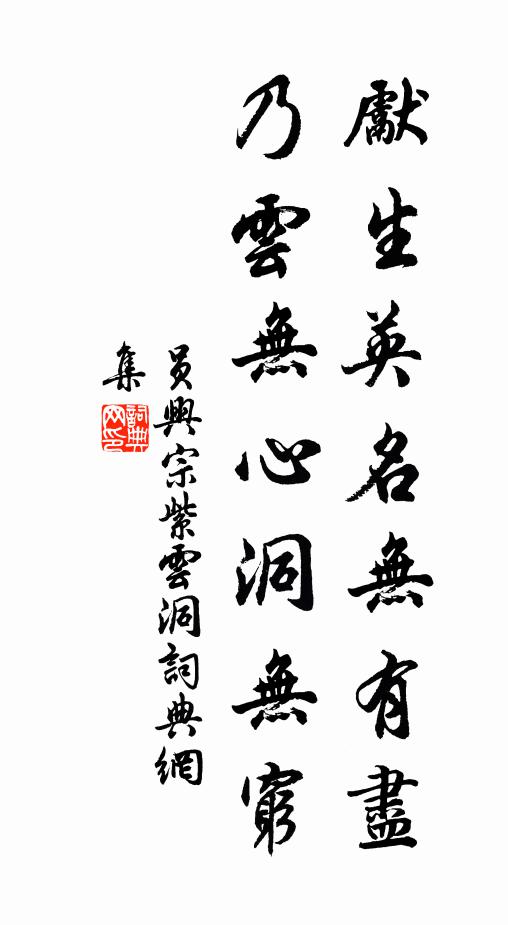 獻生英名無有盡
乃雲無心洞無窮
員興宗紫雲洞詞典網
集
詞典
网印